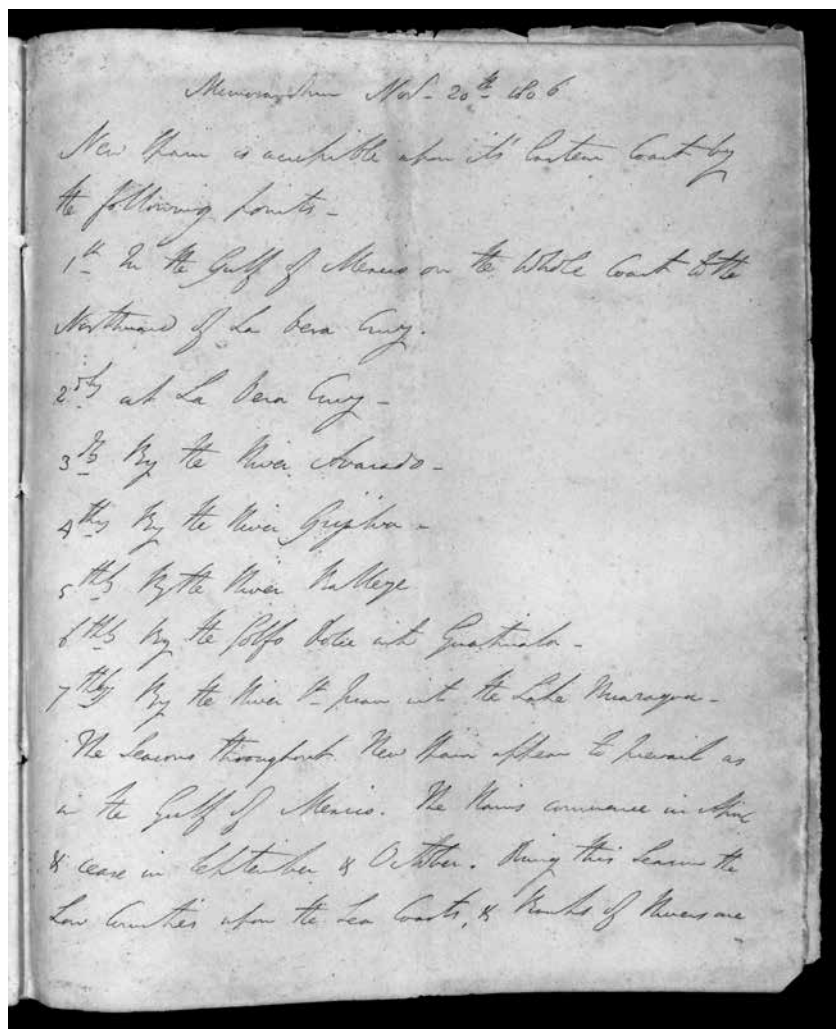 Memorandum Nov.- 20th- 1806
New Spain is accessible upon its' Eastern Coast by
the following points -
1st In the Gulf of Mexico on the Whole Coast to the
Northward of La Vera Cruz.
2dly at La Vera Cruz -
3dly By the River Alvarado -
4thly By the River Grijalva -
5thly By the River
6thly By the Golfo Dolce into Guatimala -
7thly By the River St Juan into the Lake Nicaragua -
The Seasons throughout New Spain appear to prevail as
in the Gulf of Mexico. The Rains commence in April
& cease in September & October. During this Season the
Low Countries upon the Sea Coasts, & Banks of Rivers are